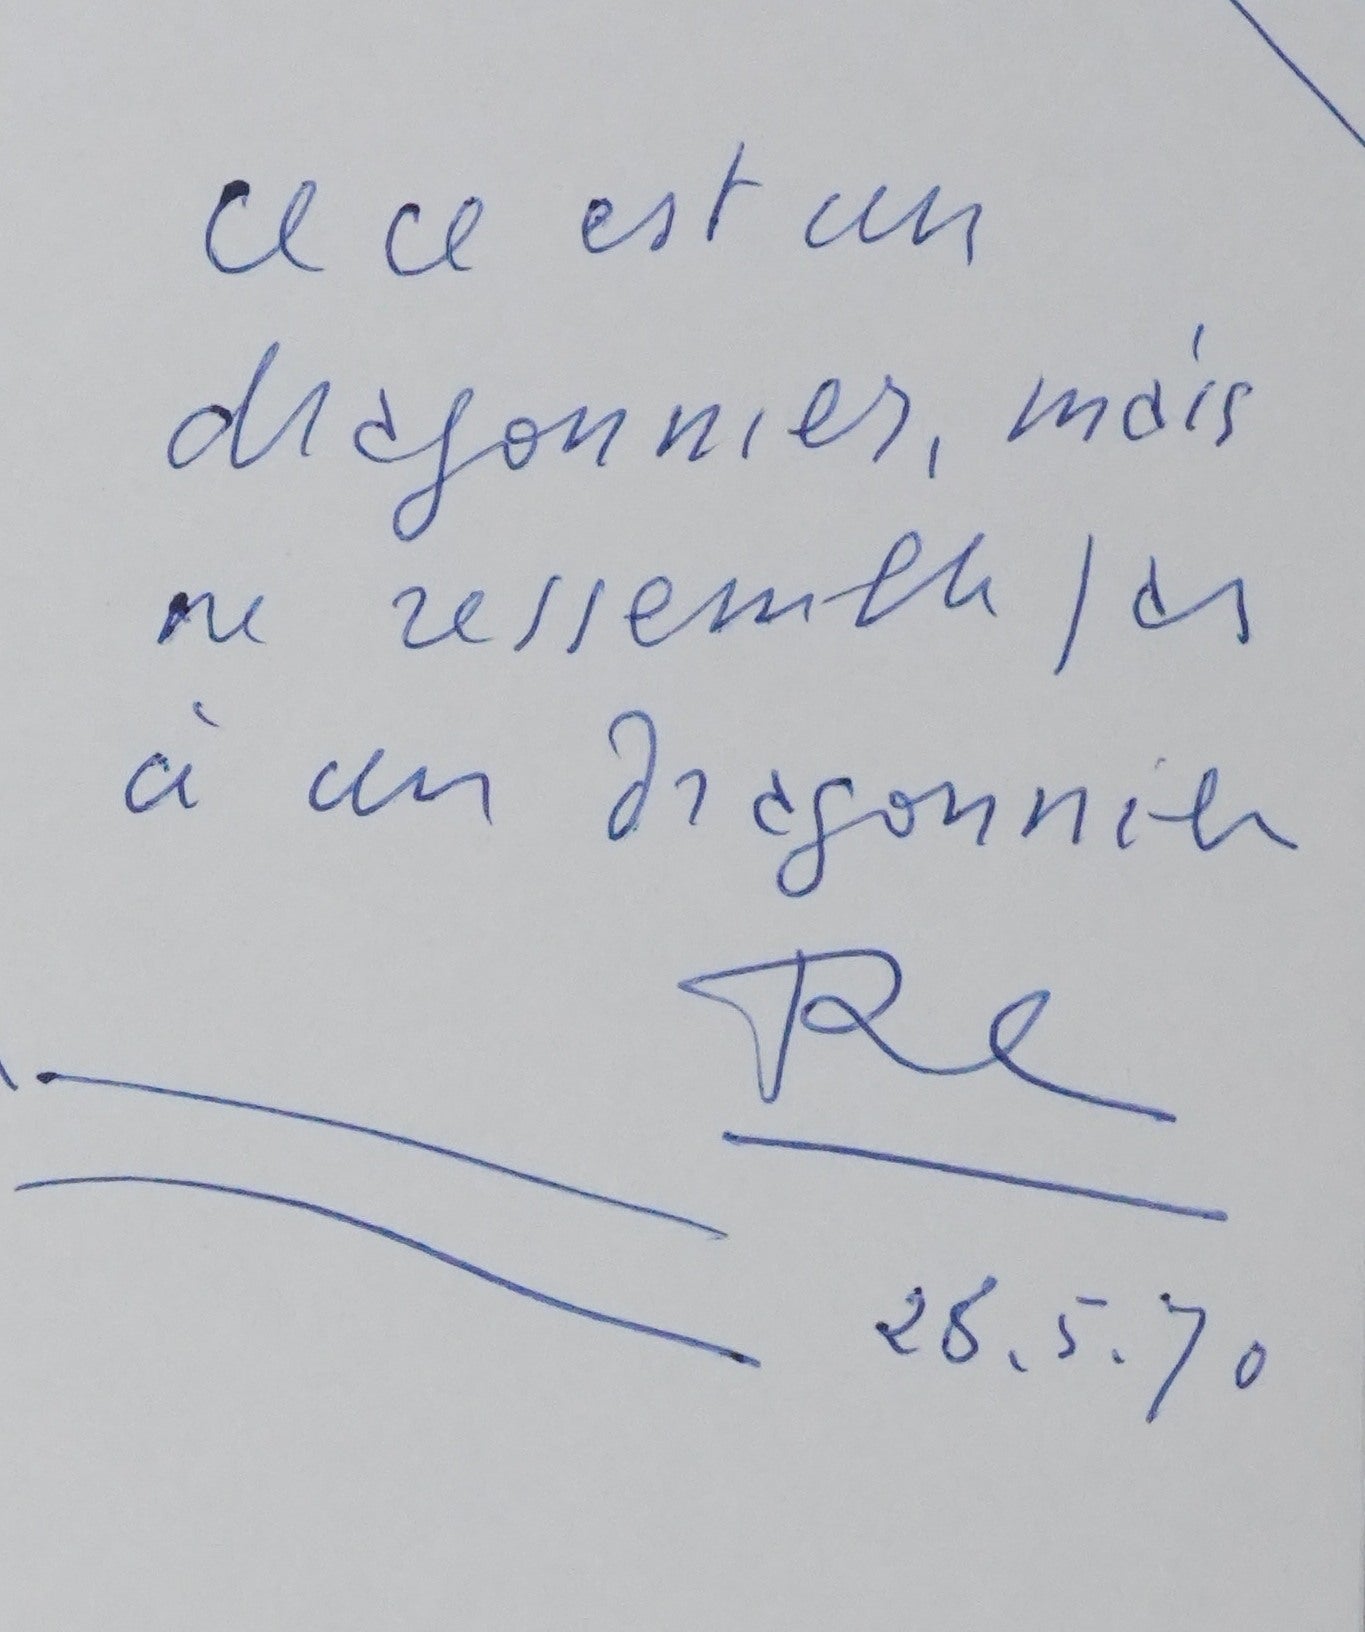 ce ce est un
dragonnier, mais
ne ressemble pas
à un dragonnier
Re
28.5.70